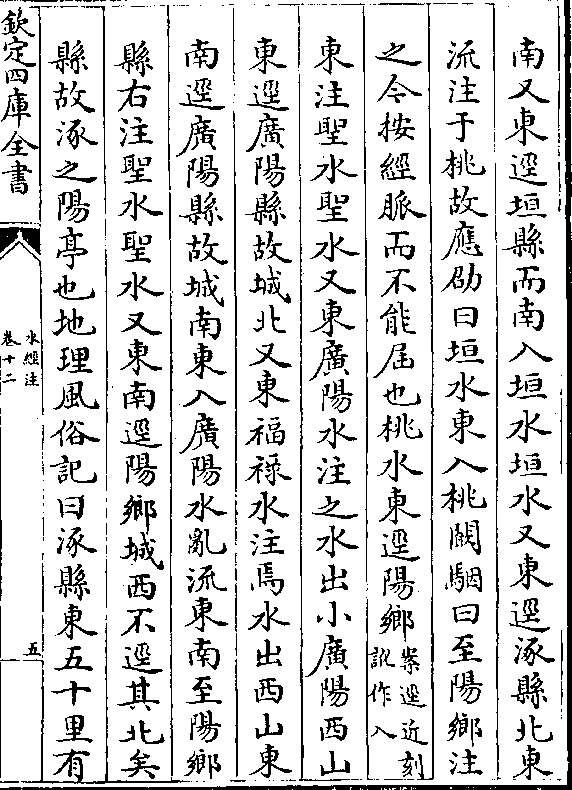 南又東逕垣縣而南入垣水垣水又東逕涿縣北東
流注于桃故應劭曰垣水東入桃闞駰曰至陽鄉注
之今按經脈而不能屆也桃水東逕陽鄉案逕近刻訛作入
東注聖水聖水又東廣陽水注之水出小廣陽西山
東逕廣陽縣故城北又東福祿水注焉水出西山東
南逕廣陽縣故城南東入廣陽水亂流東南至陽鄉
縣右注聖水聖水又東南逕陽鄉城西不逕其北矣
縣故涿之陽亭也地理風俗記曰涿縣東五十里有
欽定四庫全書
水經注
卷十二
五